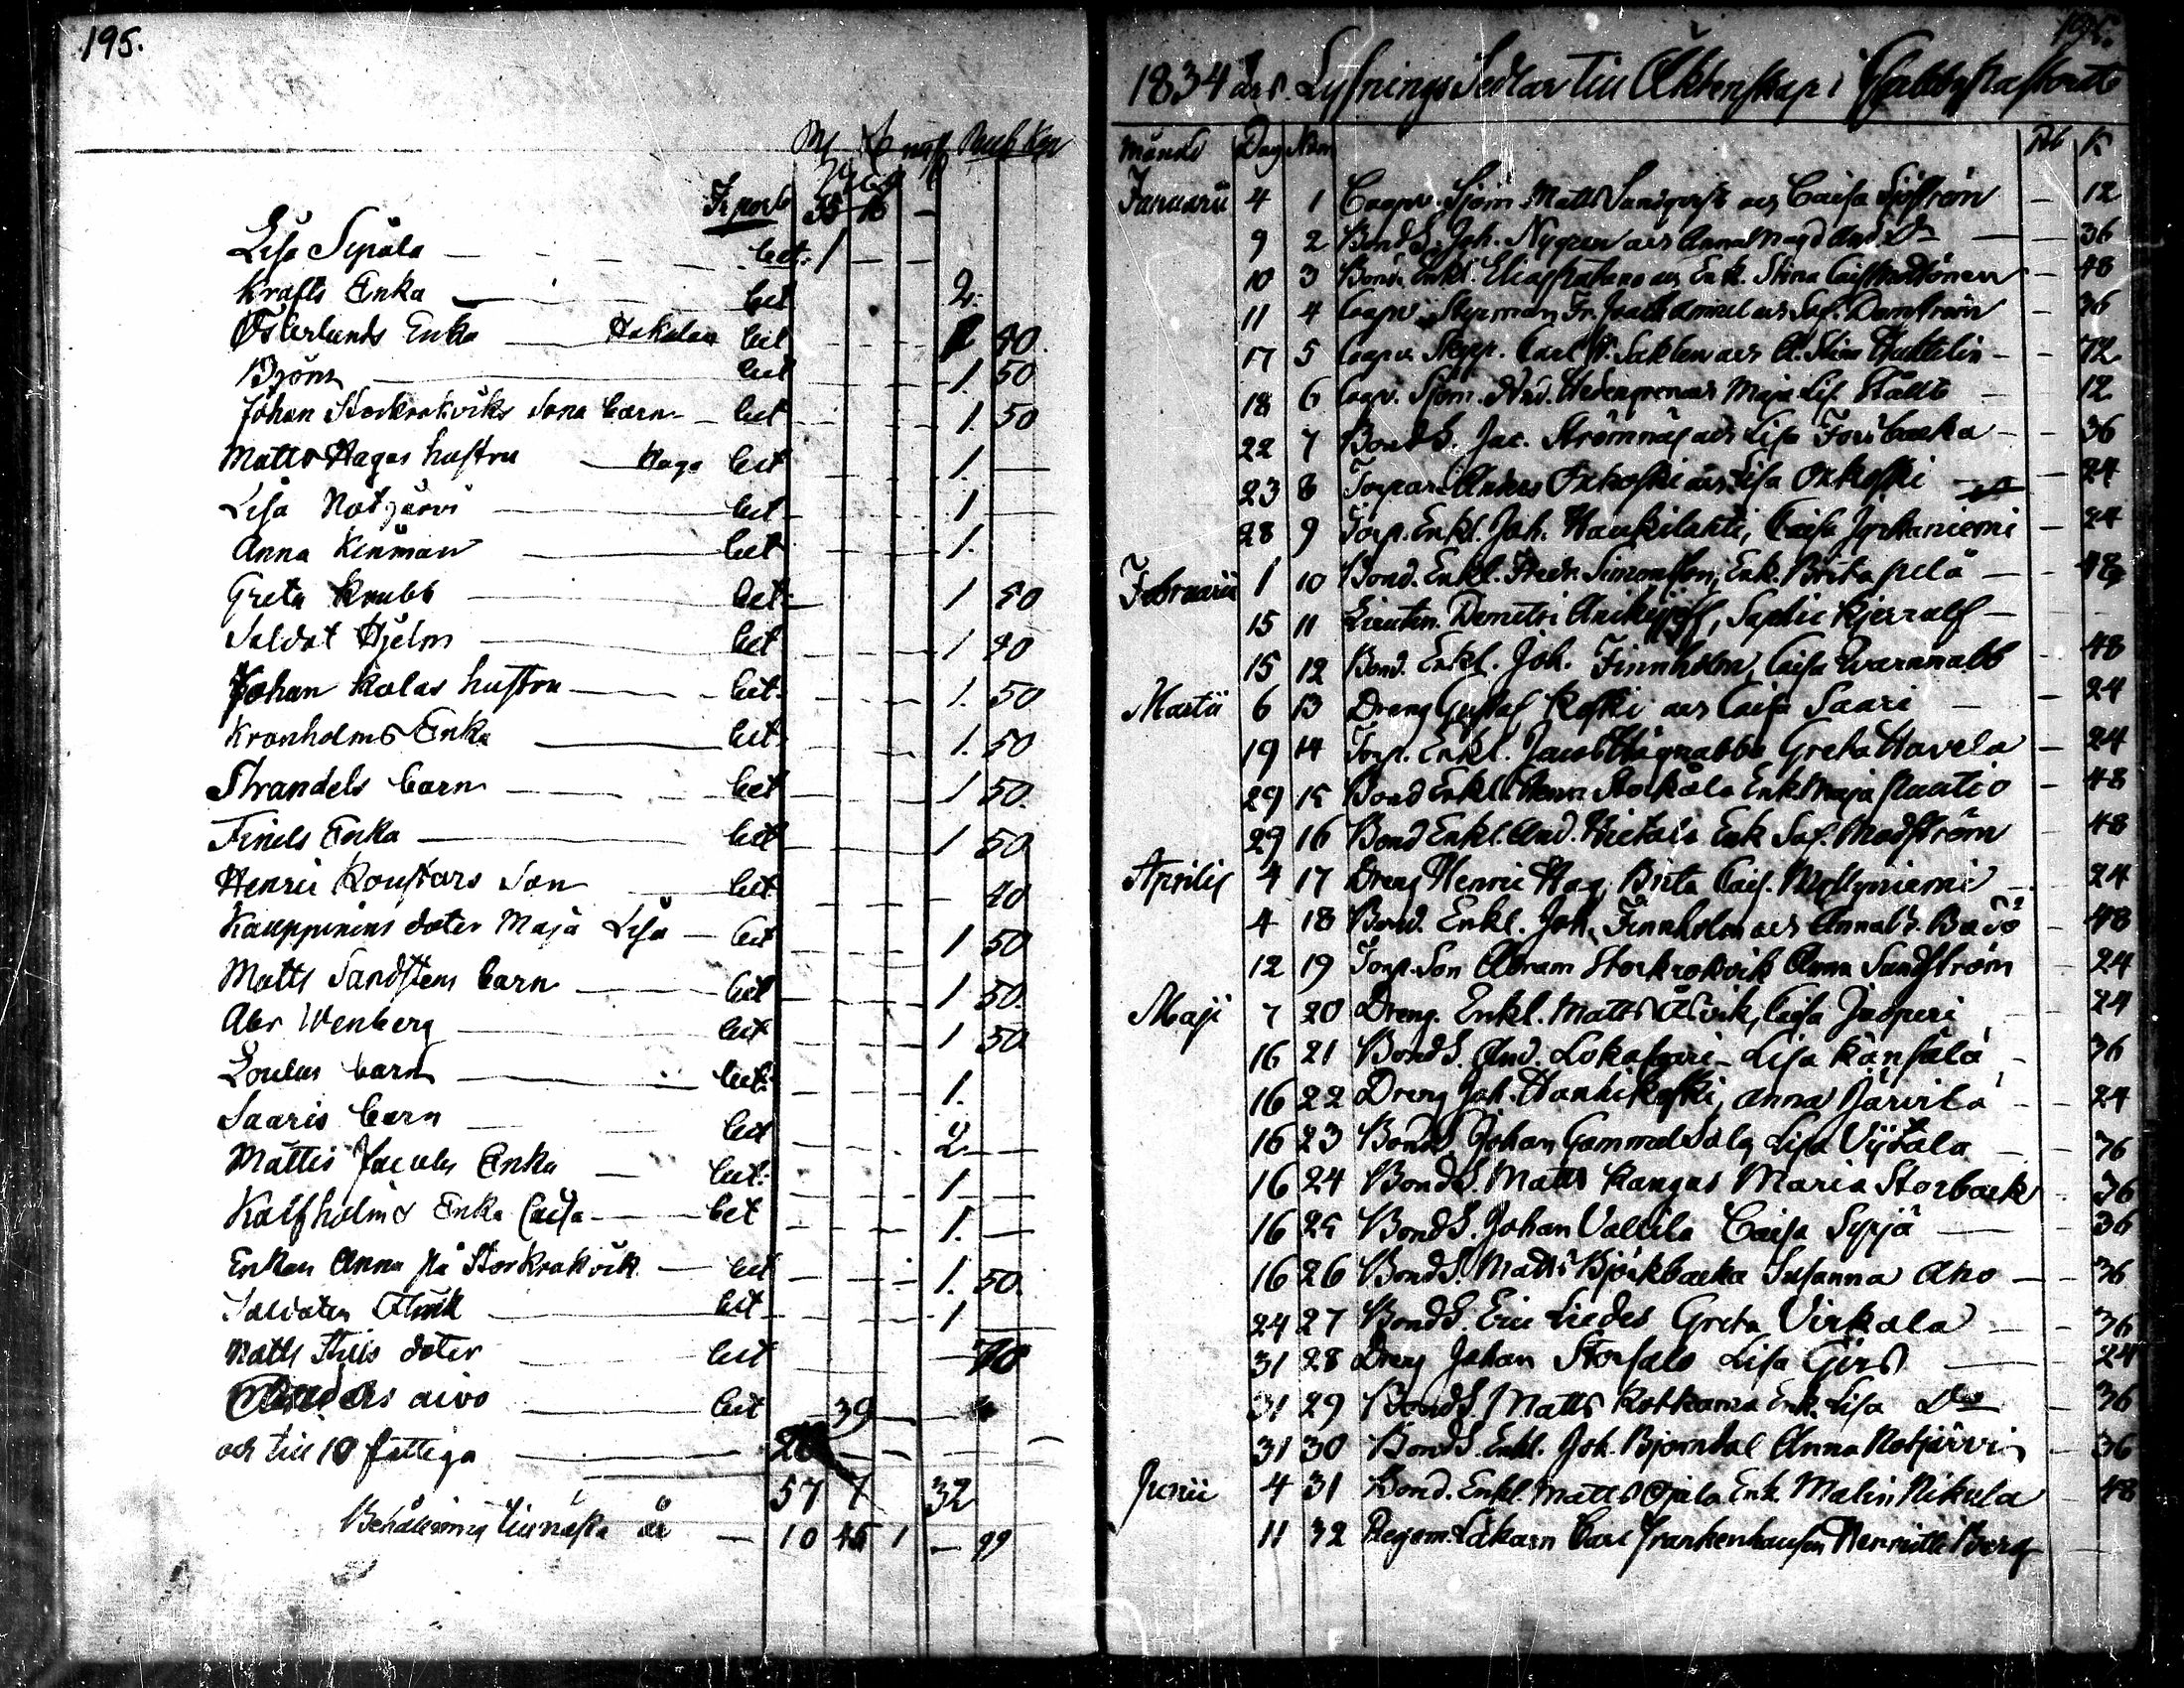 195.
Rub Kop
Trport
Lisa Sipola bet. 1
Krafts Enka bet 2.
Österlunds Enka Hakalax bet 40.
Björn bet 1. 50
Johan Storkrokviks Sona barn bet 1. 50
Matts Hagas hustru Haga bet 1.
Lisa Notjärvi bet 1
Anna Kinman bet 1.
Greta Knubb bet 1 50
Soldat Hjelm bet 1 40
Johan Kalas hustru bet 1. 50
Kronholms Enka bet 1. 50
Strandels barn bet 1 50.
Finels Enka bet 1 50
Henric Koustars Son bet 40
Kauppinens doter Maja Lisa bet 1 50
Matts Sandstens barn bet 1 50.
Abr Wenberg bet 1 50
barn bet 1.
Saaris barn bet 2
Mattes Jacobs Enka bet. 1
Kalfholms Enka Caisa bet 1.
Enkan Anna på Storkrokvik bet 1. 50.
Soldaten bet 1
Matts doter bet 70
aivo bet 39
och till 10 fattiga
57 7 32
Behållning till nästa år 10 45 1 99
1834 års Lysnings Sedlar till Äktenskap i
Månad Dag Num Rb K
Januarii 4 1 Coopv. Sjöm. Matts Sandqvist och Caisa Sjöström 12
9 2 Bond S. Joh. Nygren och Anna Magd And. Do 36
10 3 Bond. Enkl. Elias och Enk. Stina Caisa 48
11 4 Coopv. Styrman Fr. och Sof. Damström 36
17 5 Coopv. Skepp. Carl F. Saklen och A. Stina 72
18 6 Coopv. Sjöm. And. Hedengren och Maja Lis. 12
22 7 Bond S. Jac. Strömnäs och Lisa Forsbacka 36
23 8 Torpar. Anders Oxkoski och Lisa Oxkoski 24
28 9 Torp. Enkl. Joh. Haukilahti, Caisa Jyrhäniemi 24
Februarii 1 10 Bond. Enkl. Fredr. Simonsson, Enk. Brita 48
15 11 Lieuten. Demitri Anikejeff, Sophie Kjerrulf
15 12 Bond. Enkl. Joh. Finnholm, Caisa Qvarnnabb 48
Martii 6 13 Dreng Gustaf Koski och Caisa Saari 24
19 14 Torp. Enkl. Jacob Hägnabba Greta Havela 24
29 15 Bond Enkl. Henr. Storkåla Enk. Maja Rautio 48
29 16 Bond Enkl. And. Hietala Enk Sof. Modström 48
Aprilis 4 17 Dreng Henric Hag, Brita Cais. 24
4 18 Bond. Enkl. Joh. Finnholm och Anna S. 48
12 19 Torp. Son Abram Storkrokvik Anna Sandström 24
Maji 7 20 Dreng. Enkl. Matts Caisa Jasperi 24
16 21 Bond S. And. Lokasaari Lisa Känsälä 36
16 22 Dreng Joh. Hanhikoski, Anna Järvilä 24
16 23 Bond S. Johan Gammelsala Lisa Vijtala 36
16 24 Bond S. Matts Kangas Maria Storbacka 36
16 25 Bond S. Johan Vallila Caisa Syrjä 36
16 26 Bond S. Matts Björkbacka Susanna Aho 36
24 27 Bond S. Eric Liedes Greta Virkala 36
31 28 Dreng Johan Storsalo Lisa Gers 24
31 29 Bond S. Matts Kotkama Enk. Lisa Do 36
31 30 Bond S. Enkl. Joh. Björndal Anna Notjärvi 36
Junii 4 31 Bond. Enkl. Matts Ojala Enk. Malin Nikula 48
11 32 Regem. Läkarn Carl Frankenhausen Henriette Borg